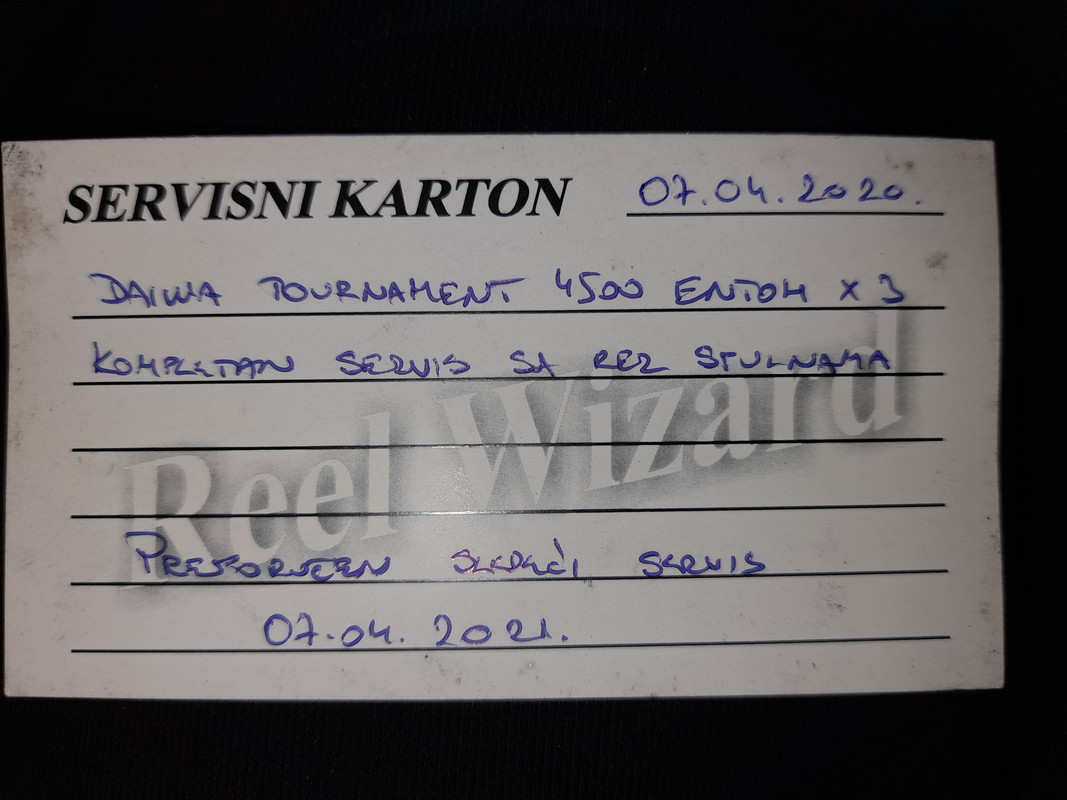 SERVISNI KARTON 07.04.2020.
DAIWA TOURNAMENT 4500 ENTOH X 3
KOMPLETAN SERVIS SA REZ STULNAMA
Reel Wizard
PREPORUČEN SLEDEĆI SERVIS
07.04.2021.